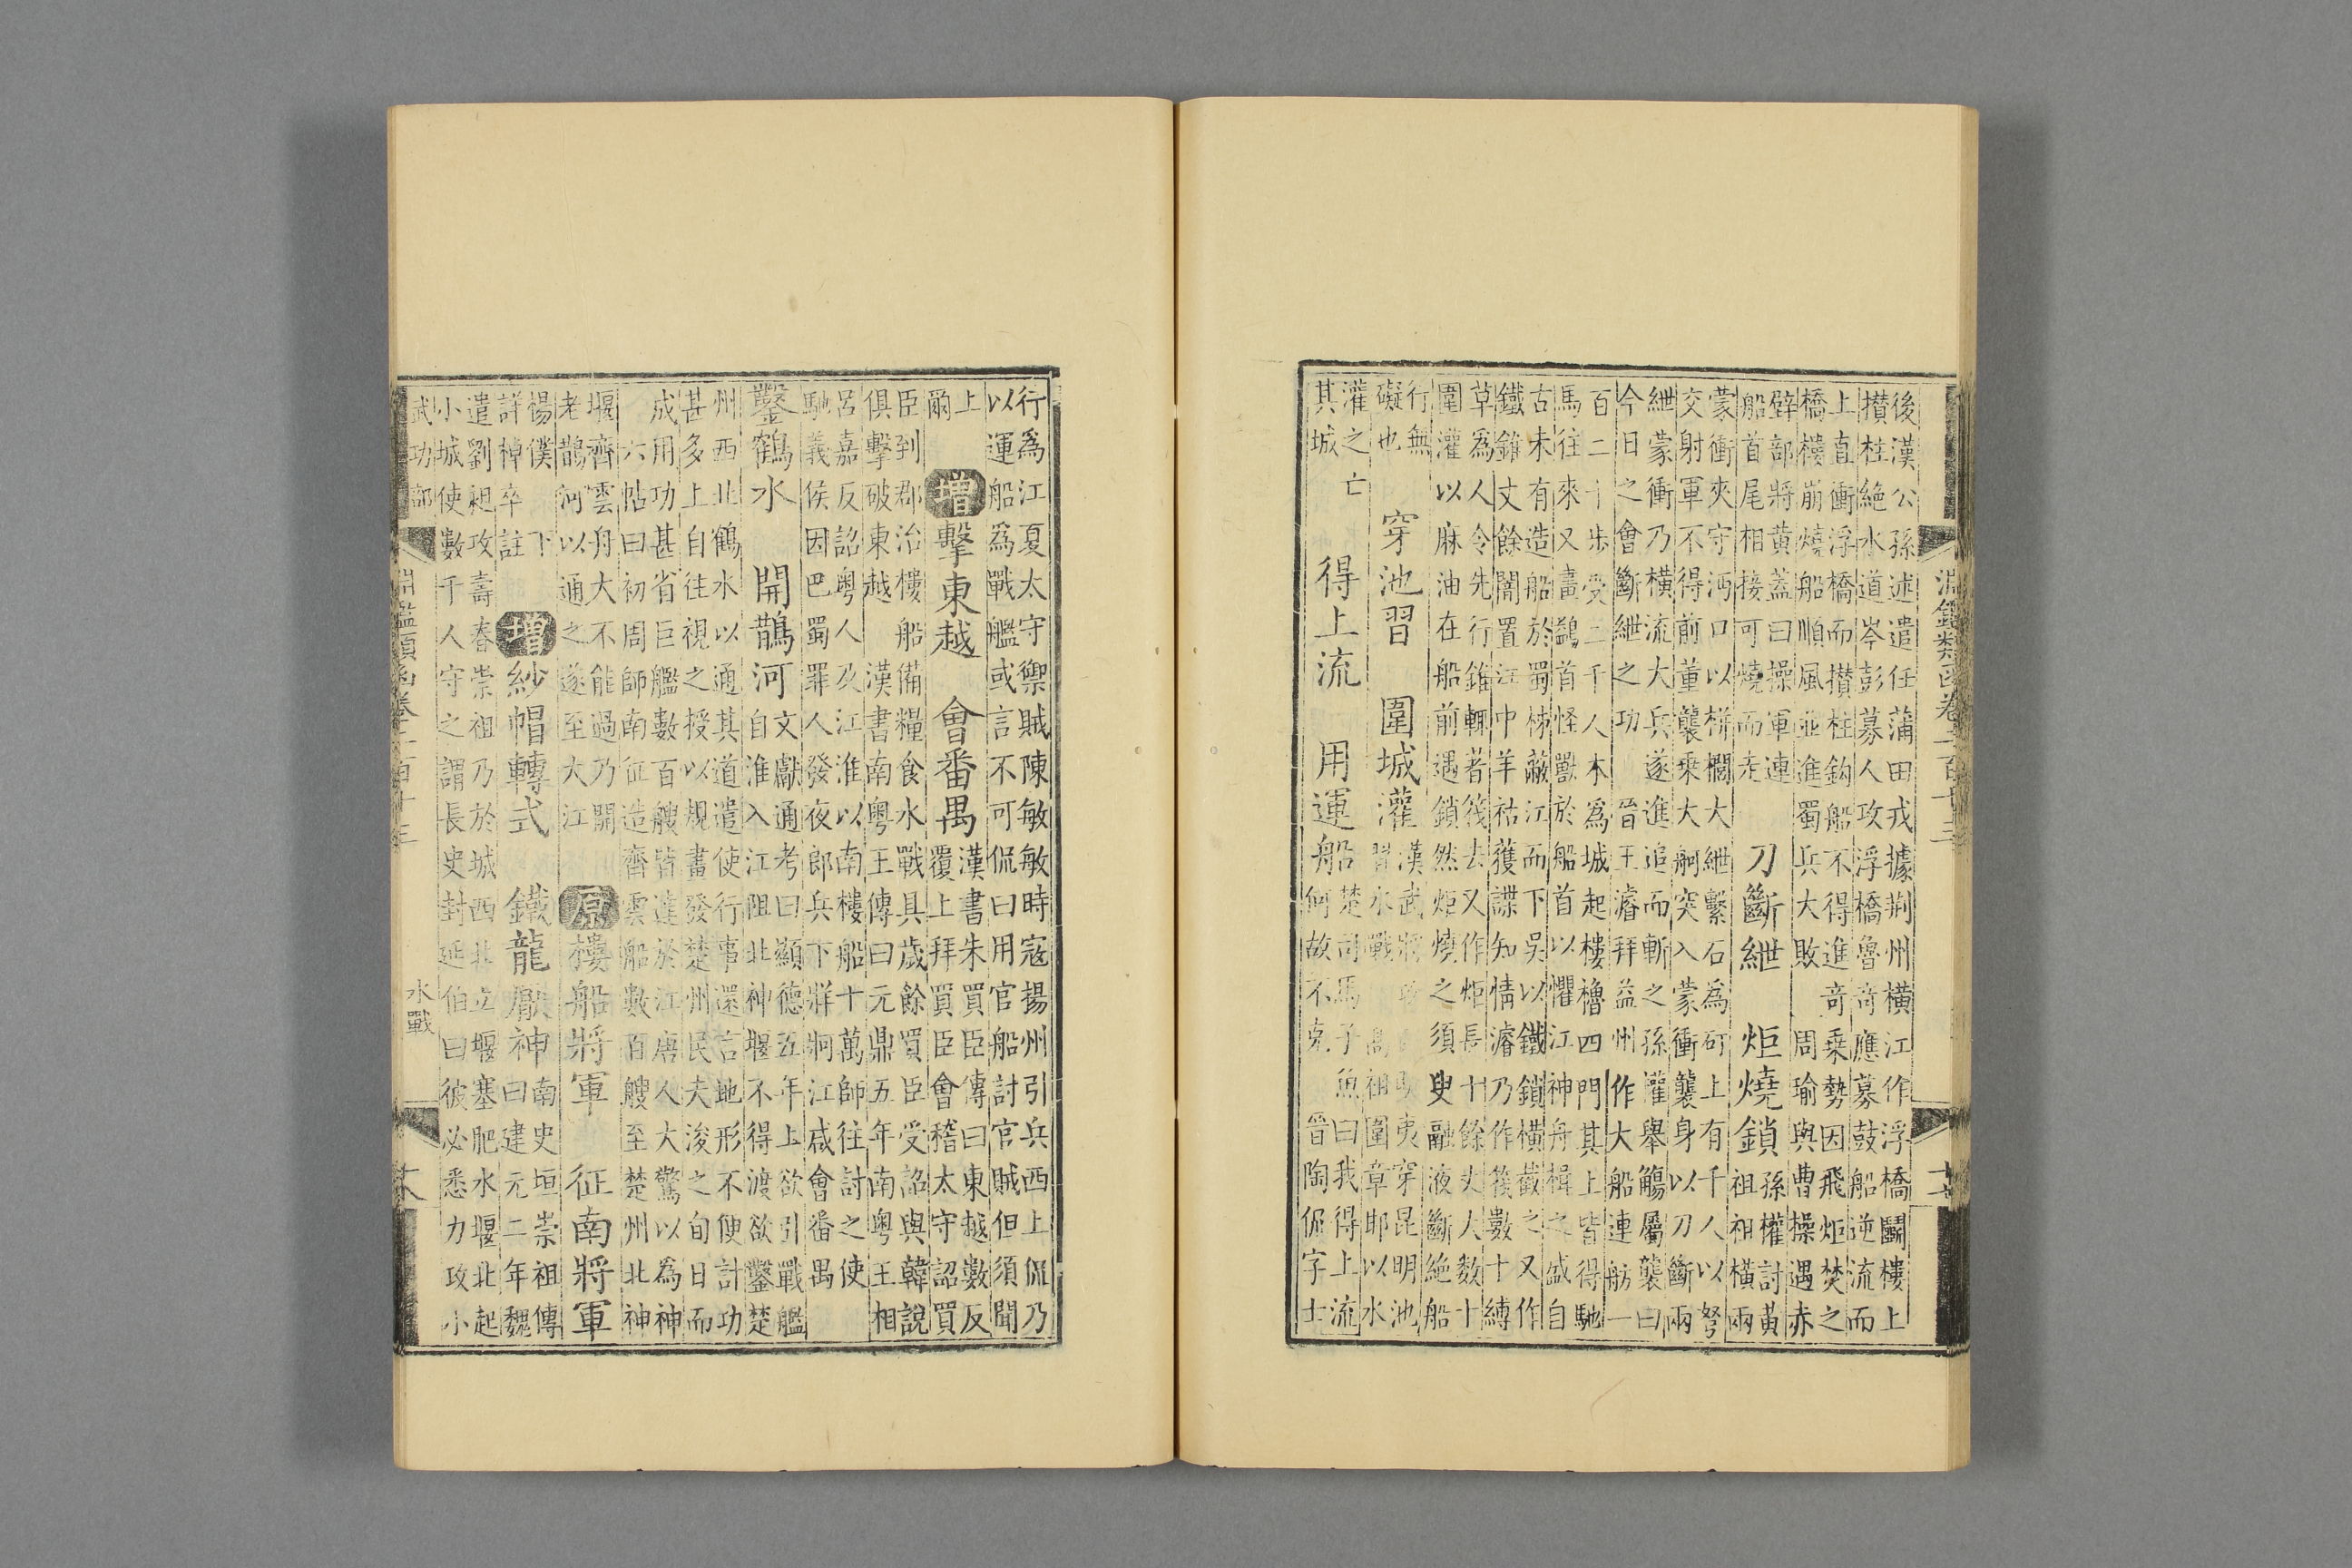 淵鑑類函卷二百十三
十七
後漢公孫述遣任蒲田戎據荆州橫江作浮橋鬭樓上
攅柱絶水道岑彭募人攻浮橋魯奇應募鼓船逆流而
上直衝浮橋而攅柱鈎船不得進奇乗勢因飛炬焚之
橋樓崩燒船順風並進蜀兵大敗 周瑜與曹操遇赤
壁部將黃蓋曰操軍連
船首尾相接可燒而走
刀斷紲 炬燒鎖
孫權討黃
祖祖橫兩
蒙衝夾守沔口以栟櫚大紲繫石為矴上有千人以弩
交射軍不得前董襲乗大舸突入蒙衝襲身以刀斷兩
紲蒙衝乃橫流大兵遂進追而斬之孫權舉觴屬襲曰
今日之會斷紲之功 晉王濬拜益州作大船連舫一
百二十步受二千人木為城起樓櫓四門其上皆得馳
馬往來又畫鷁首怪獸於船首以懼江神舟楫之盛自
古未有造船於蜀柹蔽江而下吳以鐵鎖橫截之又作
鐵錐丈餘闇置江中羊祜獲諜知情濬乃作筏數十縛
草為人令先行錐輒著筏去又作炬長十餘丈大數十
圍灌以麻油在船前遇鎖然炬燒之須臾融液斷絶船
行無
礙也
穿池習 圍城灌
漢武將 夷穿昆明池
習水戰 高祖圍章邯以水
灌之亡
其城
得上流 用運船
楚司馬子魚曰我得上流
何故不克 晉陶侃字士
行為江夏太守禦賊陳敏敏時寇揚州引兵西上侃乃
以運船為戰艦或言不可侃曰用官船討官賊但須聞
上
爾
增 擊東越 會番禺
漢書朱買臣傳曰東越數反
覆上拜買臣會稽太守詔買
臣到郡治樓船備糧食水戰具歲餘買臣受詔與韓說
俱擊破東越 漢書南粤王傳曰元鼎五年南粤王相
呂嘉反詔粤人及江淮以南樓船十萬師往討之使
馳義侯因巴蜀罪人發夜郎兵下牂牁江咸會番禺
鑿鶴水 開鵲河
文獻通考曰顯德五年上欲引戰艦
自淮入江阻北神堰不得渡欲鑿楚
州西北鶴水以通其道遣使行事還言地形不便計功
甚多上自往視之授以規畫發楚州民夫浚之旬日而
成用功甚省巨艦數百艘皆達於江唐人大驚以為神
六帖曰初周師南征造齊雲船數百艘至楚州北神
堰齊雲舟大不能過乃開
老鵲河以通之遂至大江
原 樓船將軍 征南將軍
楊僕 下
詳棹卒註
增 紗帽轉式 鐵龍厭神
南史垣崇祖傳
曰建元二年魏
遣劉昶攻壽春崇祖乃於城西北立堰塞肥水堰北起
小城使數千人守之謂長史封延伯曰彼必悉力攻小
武功部
淵鑑類函卷二百十三
水戰
十八